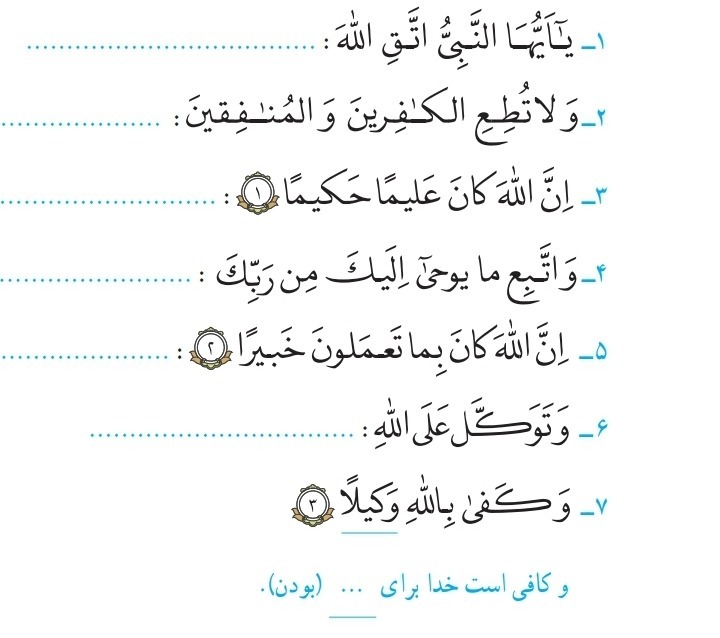 ۱ـ یٰٓاَیُّهَا النَّبِیُّ اتَّقِ اللّٰهَ : ....................................
۲ـ وَ لا تُطِعِ الکٰفِرینَ وَ المُنٰفِقینَ : ....................
۳ـ اِنَّ اللّٰهَ کانَ عَلیمًا حَکیمًا ۱ : ...........................
۴ـ وَ اتَّبِع ما یوحیٰٓ اِلَیکَ مِن رَبِّکَ : ........................
۵ـ اِنَّ اللّٰهَ کانَ بِما تَعمَلونَ خَبیرًا ۲ : .....................
۶ـ وَ تَوَکَّل عَلَی اللّٰهِ : .................................
۷ـ وَ کَفیٰ بِاللّٰهِ وَکیلًا ۳
و کافی است خدا برای ... (بودن).